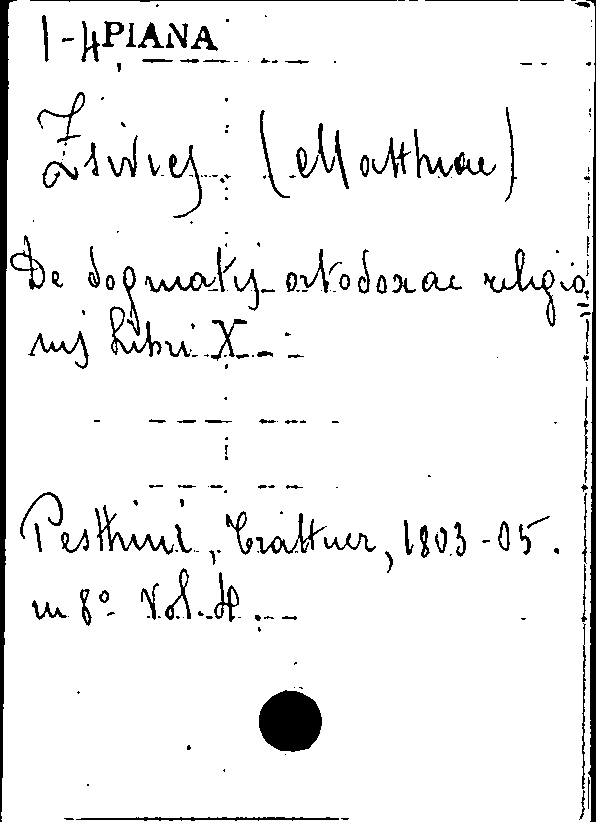 1-4 PIANA
Zsivics (Matthiae)
De dogmatis ortodoxae religio
nis Libri X
Pesthini, Trattner, 1803-05.
in 8° Vol. 4.